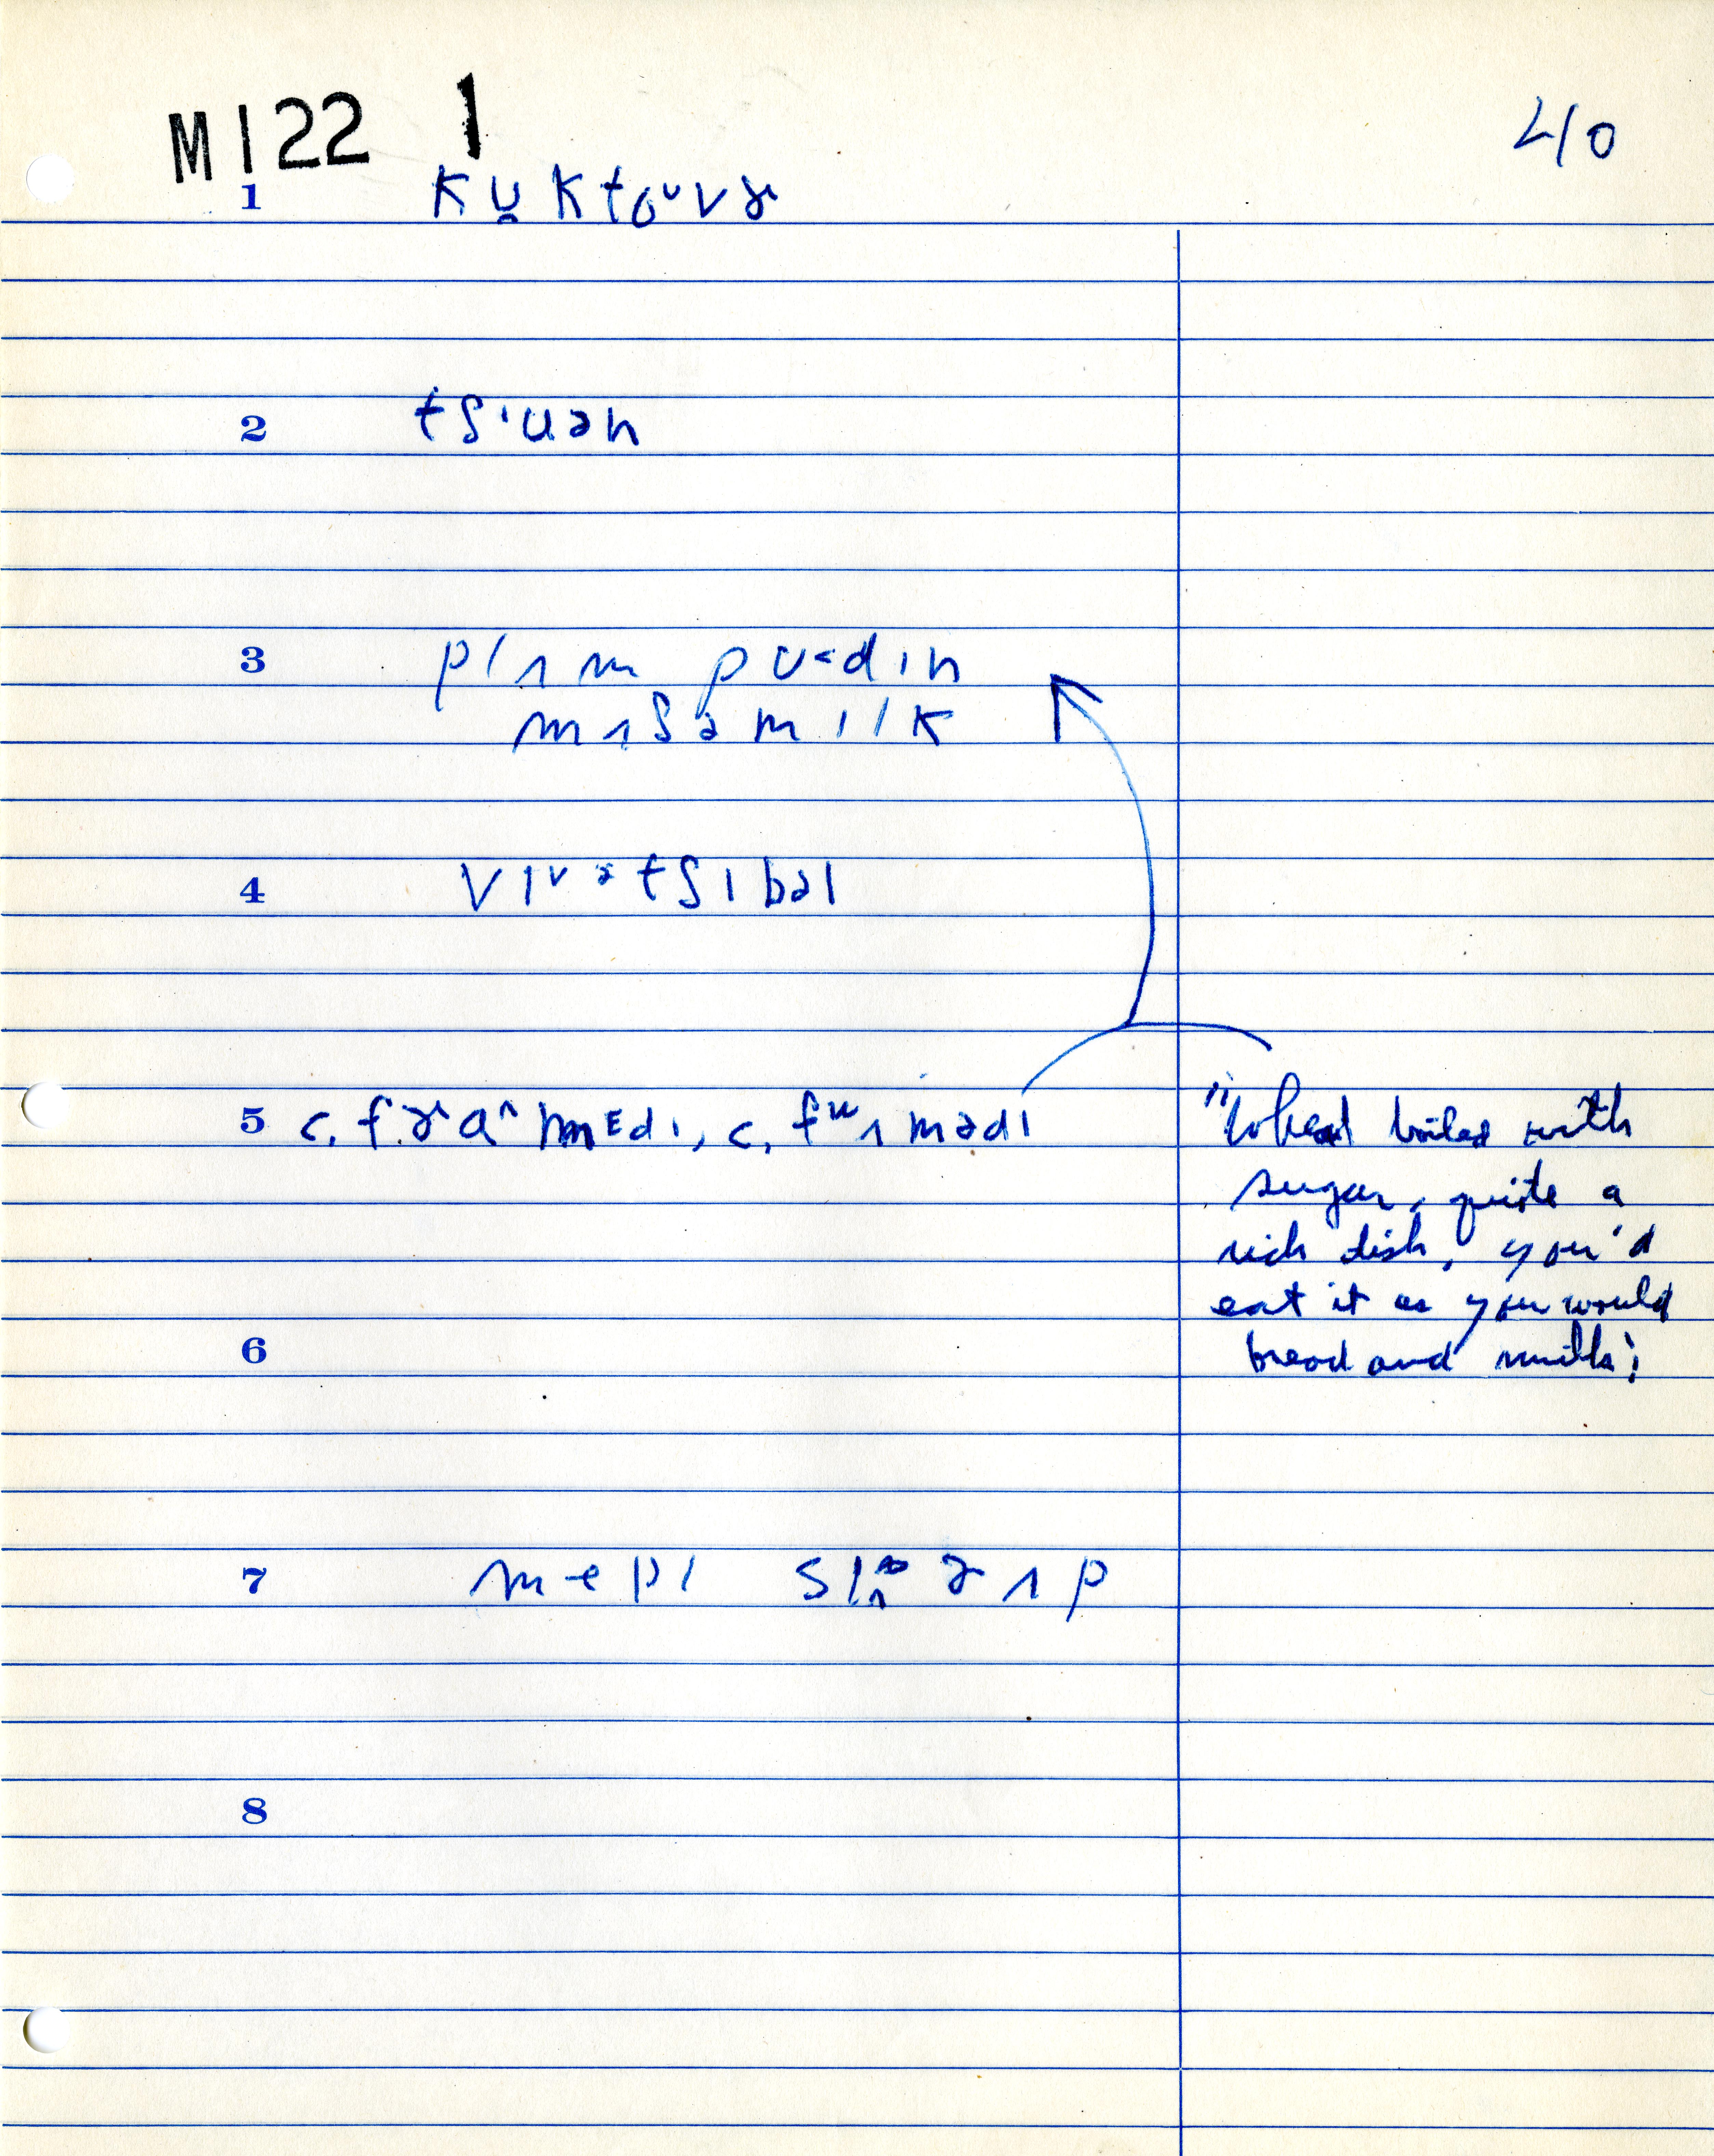 M122 1
40
1 kʊ̯ktoᵘvɚ
2 tʃɪuən
3 plʌm pʊ<dɪn
mʌʃəmɪlk
4 vɪᵛᵊtʃɪbəl
5 c. fɚɑʌmɛdɪ, c. fʌmədɪ
"Wheat boiled with
sugar, quite a
rich dish, you'd
eat it as you would
bread and milk";
6
7 mepl ɚʌp
8